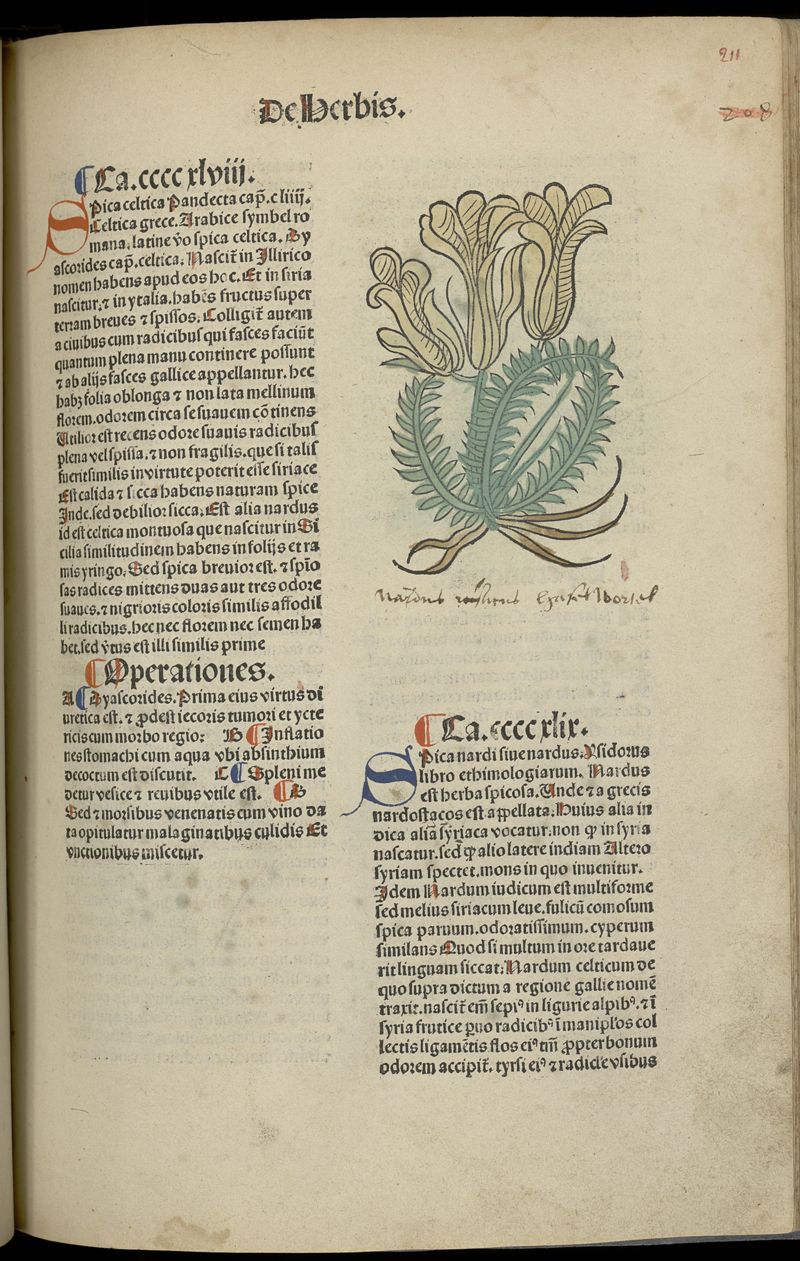 211
De Herbis.
208
¶ Ca.cccc xlviij.
SPica celtica Pandecta cap̄. cliiij.
Celtica grece. Arabice symbel ro
mana. latine v̄o spica celtica. Dy
ascorides cap̄. celtica. Nascit̄ in Illirico
nomen habens apud eos hoc. Et in siria
nascitur. ⁊ in ytalia. habēs fructus super
terram breues ⁊ spissos. Colligit̄ autem
a ciuibus cum radicibus qui fasces faciūt
quantum plena manu continere possunt
⁊ ab alijs fasces gallice appellantur. hec
habꝫ folia oblonga ⁊ non lata mellinum
florem. odorem circa se suauem cōtinens
Utilior est recens odore suauis radicibus
plena vel spissa. ⁊ non fragilis. que si talis
fuerit similis in virtute poterit esse siriace
Est calida ⁊ sicca habens naturam spice
Inde. sed debilior sicca. Est alia nardus
id est celtica montuosa que nascitur in Si
cilia similitudinem habens in folijs et ra
mis yringo. Sed spica breuior est. ⁊ spīo
sas radices mittens duas aut tres odore
suaues. ⁊ nigrioris coloris similis affodil
li radicibus. hec nec florem nec semen ha
bet. sed v̄tus est illi similis prime
¶ Operationes.
A ¶ Dyascorides. Prima eius virtus di
uretica est. ⁊ ꝓdest iecoris tumori et ycte
ricis cum morbo regio: B ¶ Inflatio
nes stomachi cum aqua vbi absinthium
decoctum est discutit. C ¶ Spleni me
detur vesice ⁊ renibus vtile est. ¶ D
Sed ⁊ morsibus venenatis cum vino da
ta opitulatur malaginatibus calidis Et
vnctionibus miscetur.
¶ Ca.cccc xlix.
SPica nardi siue nardus. Ysidorus
libro ethimologiarum. Nardus
est herba spicosa. Unde ⁊ a grecis
nardostacos est appellata. Huius alia in
dica aliā syriaca vocatur. non ꝙ in syria
nascatur. sed ꝙ alio latere indiam Altero
syriam spectet. mons in quo inuenitur.
Idem Nardum iudicum est multiforme
sed melius siriacum leue. fulicū comosum
spica paruum. odoratissimum. cyperum
similans Quod si multum in ore tardaue
rit linguam siccat: Nardum celticum de
quo supra dictum a regione gallie nomē
traxit. nascit̄ em̄ sepiꝰ in ligurie alpibꝰ. ⁊ ī
syria frutice ꝑuo radicibꝰ ī manipl'os col
lectis ligamētis flos eiꝰ tm̄ ꝓpter bonum
odorem accipit̄. tyrsi eiꝰ ⁊ radicle vsibus